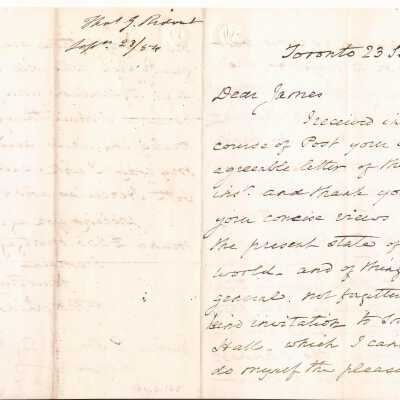 Thos G. Ridout
Septr 23/54
Toronto 23 S
Dear James
I received in
course of Post your
agreeable letter of th
inst. and thank yo
your concise views
the present state of
world. and of thing
general. not forgettin
kind invitation to
Hall. which I can
do myself the pleas